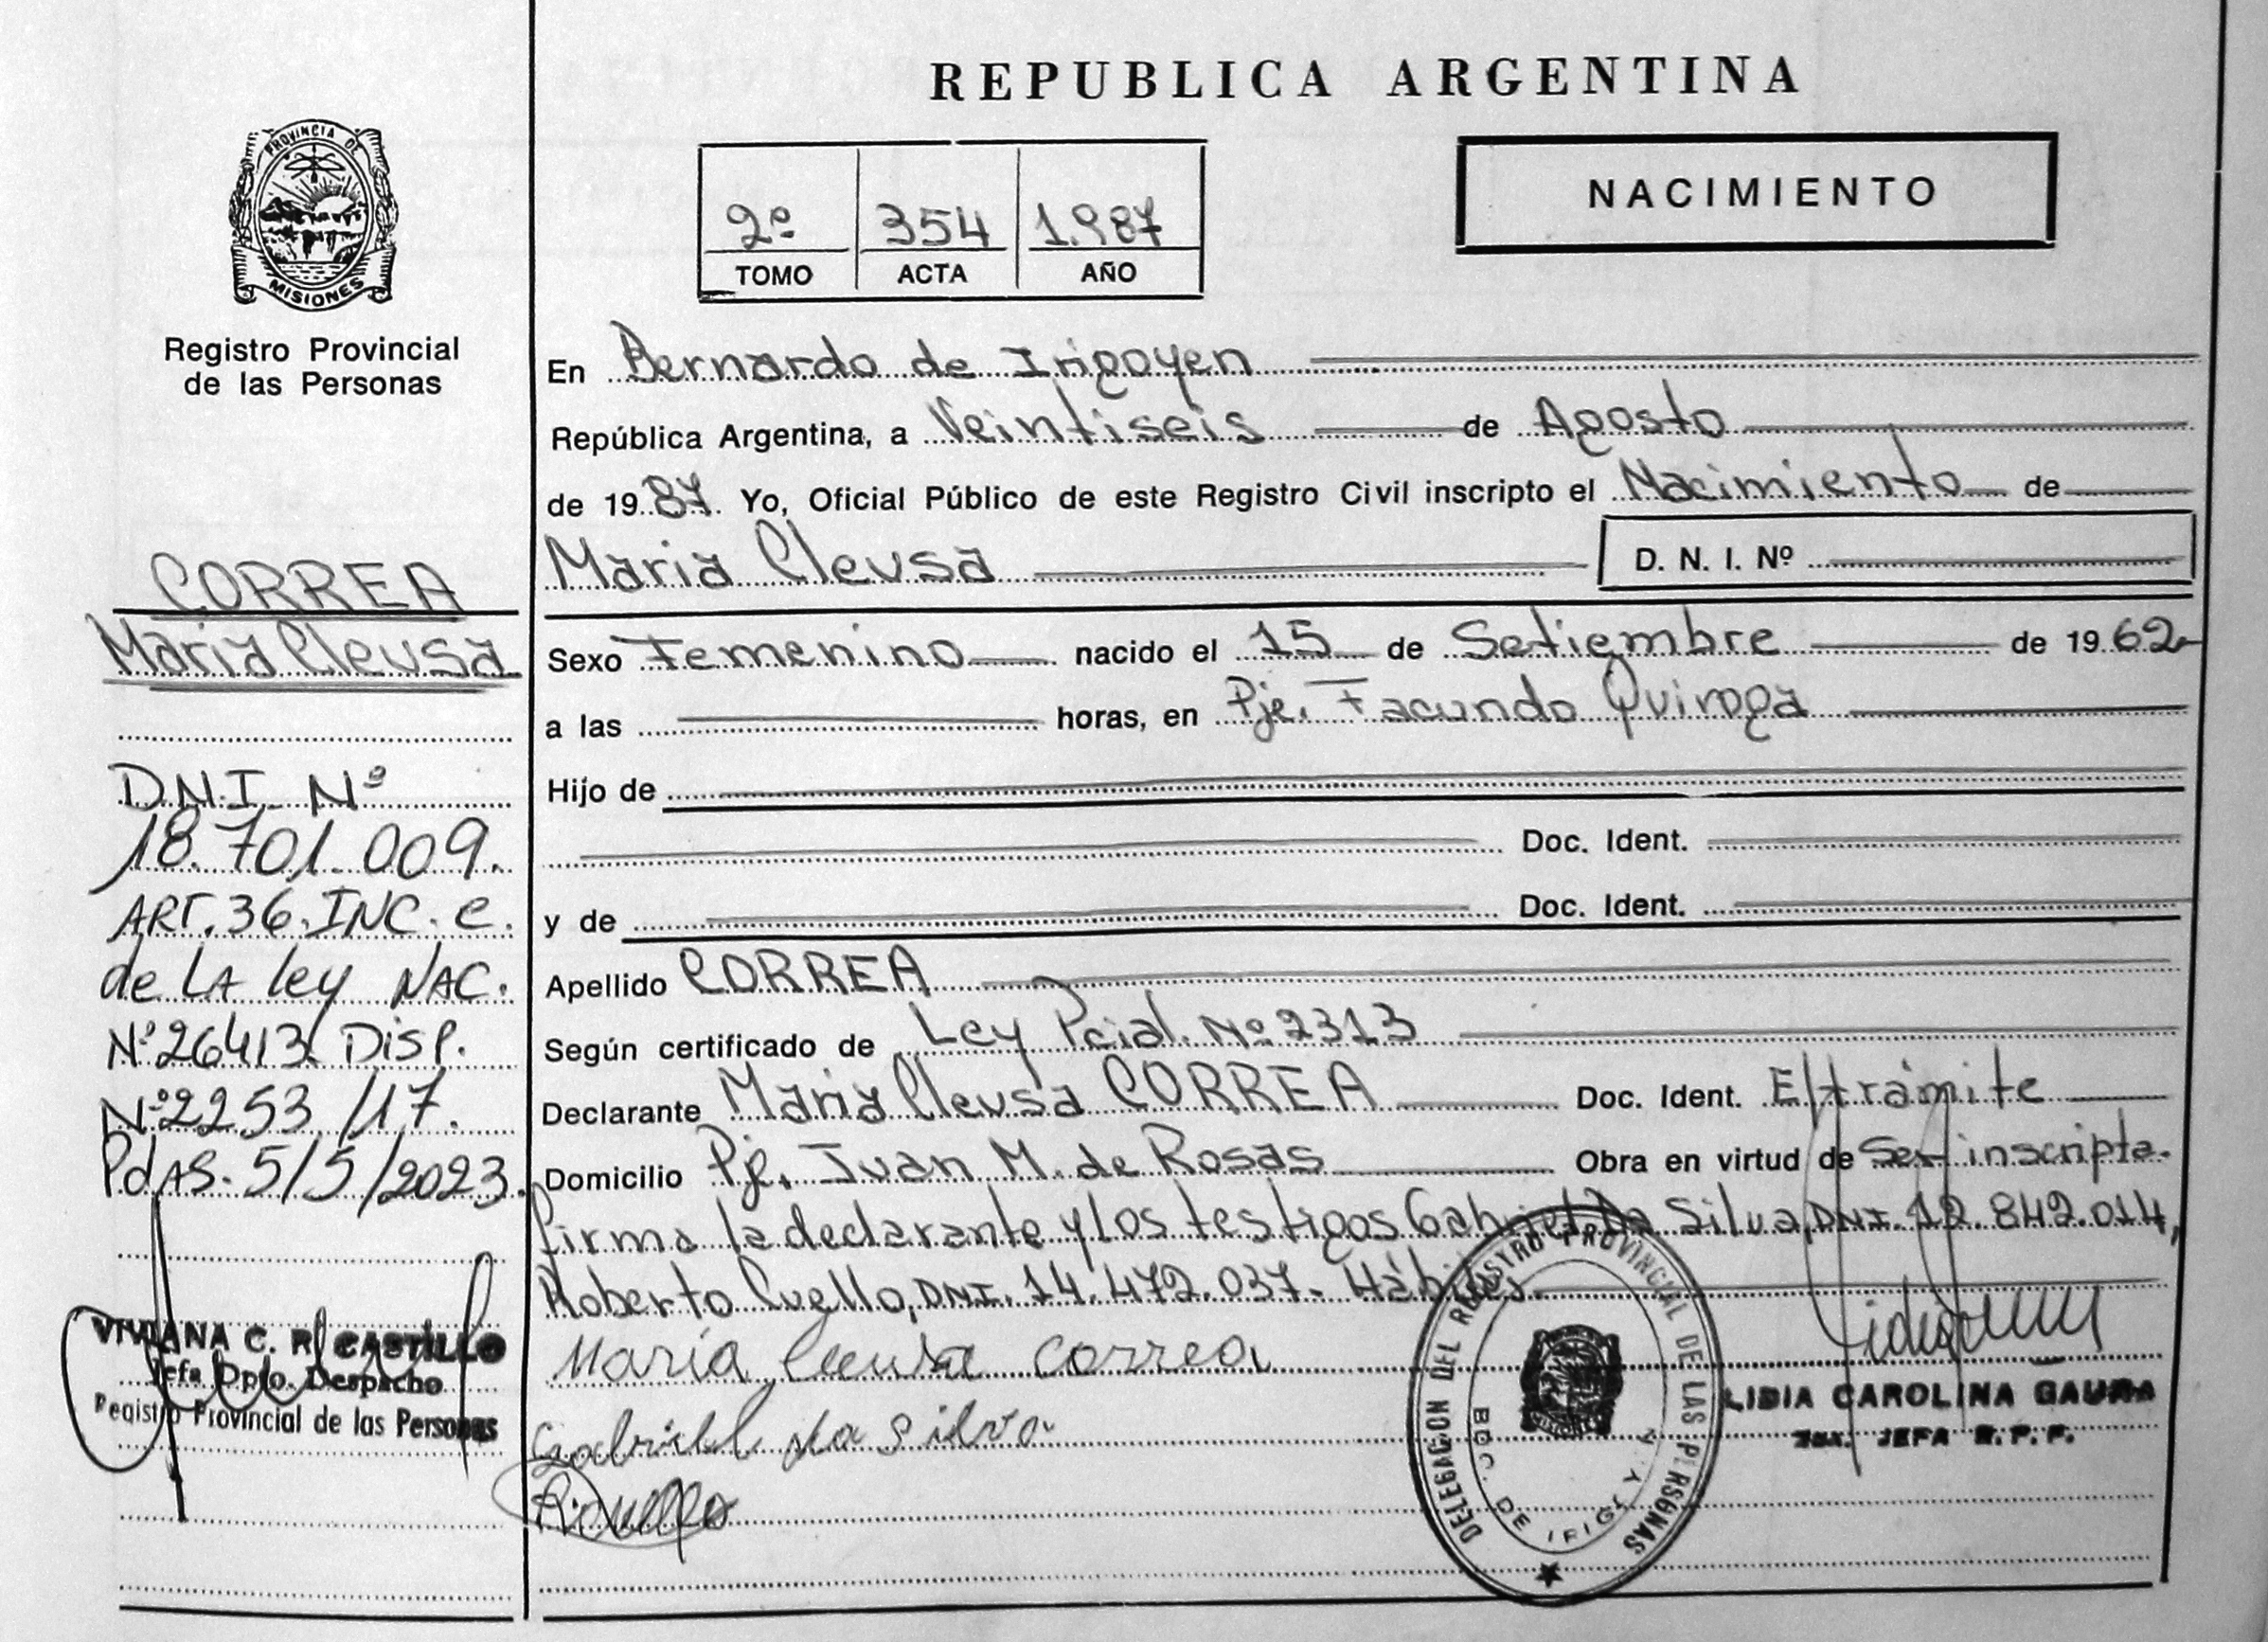 REPUBLICA ARGENTINA
PROVINCIA DE
MISIONES
Registro Provincial
de las Personas
2º 354 1.987
TOMO ACTA AÑO
NACIMIENTO
En Bernardo de Irigoyen
República Argentina, a Veintiseis de Agosto
de 1987. Yo, Oficial Público de este Registro Civil inscripto el Nacimiento de
Maria Cleusa D. N. I. Nº
CORREA
Maria Cleusa
Sexo Femenino nacido el 15 de Setiembre de 1962
a las horas, en Pje. Facundo Quiroga
Hijo de
Doc. Ident.
y de Doc. Ident.
Apellido CORREA
Según certificado de Ley Pcial. Nº 2313
Declarante Maria Cleusa CORREA Doc. Ident. E/trámite
Domicilio Pje. Juan M. de Rosas Obra en virtud de Ser inscripta.
firma la declarante y los testigos Gabriel Da Silva, DNI. 12.842.014,
Roberto Cuello, DNI. 14.472.037- Hábiles.
Maria Cleusa Correa
Gabriel da Silva
D.N.I. Nº
18.701.009.
ART. 36. INC. e.
de LA ley NAC.
Nº 26413. DISP.
Nº 2253/17.
PdAS. 5/5/2023.
VIVIANA C. R. CASTILLO
Jefa Dpto. Despacho
Registro Provincial de las Personas
DELEGACION DEL REGISTRO PROVINCIAL DE LAS PERSONAS
BDO. DE IRIGOYEN
LIDIA CAROLINA GAURA
JEFA R. P. P.